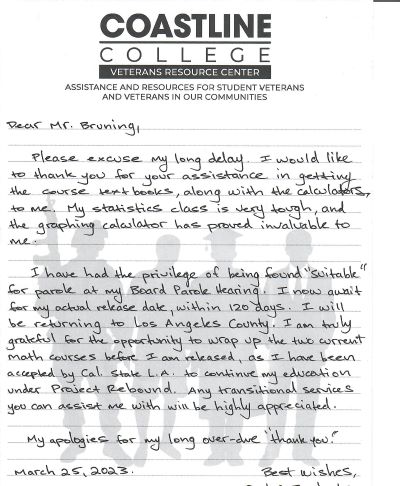 COASTLINE
COLLEGE
VETERANS RESOURCE CENTER
ASSISTANCE AND RESOURCES FOR STUDENT VETERANS
AND VETERANS IN OUR COMMUNITIES
Dear Mr. Bruning,
Please excuse my long delay. I would like
to thank you for your assistance in getting
the course text books, along with the calculators,
to me. My statistics class is very tough, and
the graphing calculator has proved invaluable to
me.
I have had the privilege of being found "suitable"
for parole at my Board Parole Hearing. I now await
for my actual release date, within 120 days. I will
be returning to Los Angeles County. I am truly
grateful for the opportunity to wrap up the two current
math courses before I am released, as I have been
accepted by Cal. State L.A. to continue my education
under Project Rebound. Any transitional services
you can assist me with will be highly appreciated.
My apologies for my long over-due "thank you."
March 25, 2023.
Best Wishes,